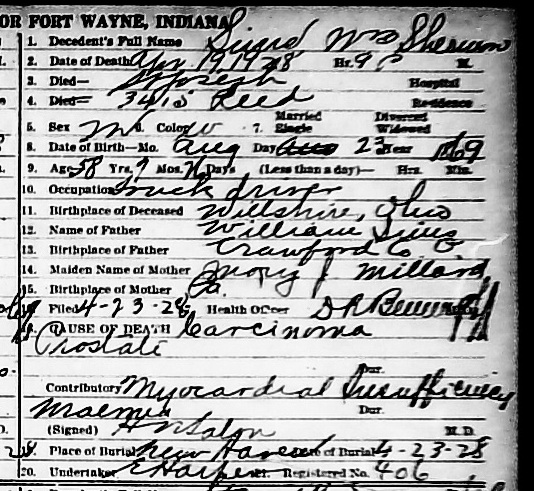 OR FORT WAYNE, INDIANA
1. Decedent's Full Name Wm Sherman
2. Date of Death Apr 19 1928 Hr. 9 P M.
3. Died— St Joseph Hospital
4. Died— 3415 Reed Residence
Married Divorced
5. Sex M 6. Color W 7. Single Widowed
8. Date of Birth—Mo. Aug Day 23 Year 1869
9. Age 58 Yrs. 7 Mos. Days (Less than a day)— Hrs. Min.
10. Occupation Truck driver
11. Birthplace of Deceased Willshire, Ohio
12. Name of Father William
13. Birthplace of Father Crawford Co. O
14. Maiden Name of Mother Mary J Millard
15. Birthplace of Mother Pa.
Filed 4-23-28 Health Officer
CAUSE OF DEATH Carcinoma
Prostate
Dur.
Contributory Myocardial Insufficiency
Dur.
(Signed) H N Salon M. D.
Place of Burial New Haven Date of Burial 4-23-28
20. Undertaker E Harper Registered No. 406